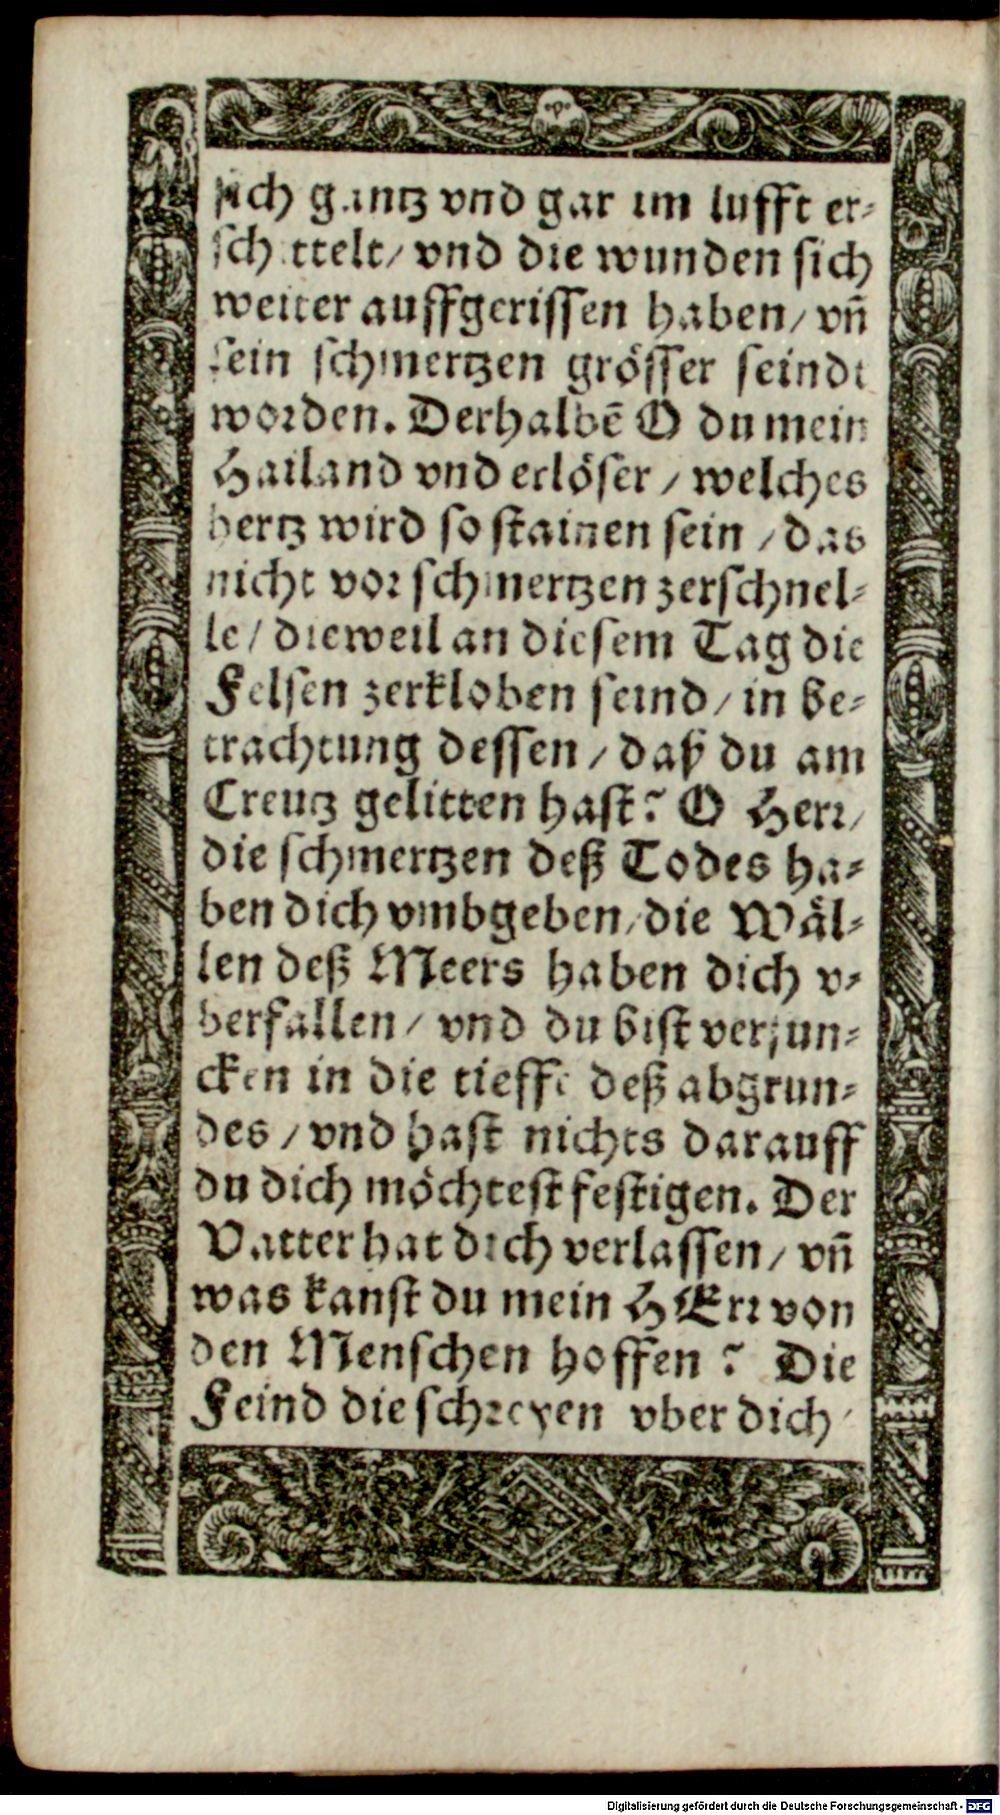 sich gantz vnd gar im lufft er-
schüttelt/ vnd die wunden sich
weitter auffgerissen haben/ vn̄
sein schmertzen grösser seindt
worden. Derhalbē O du mein
Hailand vnd erlöser / welches
hertz wird so stainen sein / das
nicht vor schmertzen zerschnel-
le / dieweil an diesem Tag die
Felsen zerkloben seind / in be-
trachtung dessen / daß du am
Creutz gelitten hast? O Herr/
die schmertzen deß Todes ha-
ben dich vmbgeben/ die Wäl-
len deß Meers haben dich v-
berfallen / vnd du bist versun-
cken in die tieffe deß abgrun-
des / vnd hast nichts darauff
du dich möchtest festigen. Der
Vatter hat dich verlassen / vn̄
was kanst du mein HErr von
den Menschen hoffen? Die
Feind die schreyen vber dich /
Digitalisierung gefördert durch die Deutsche Forschungsgemeinschaft - DFG